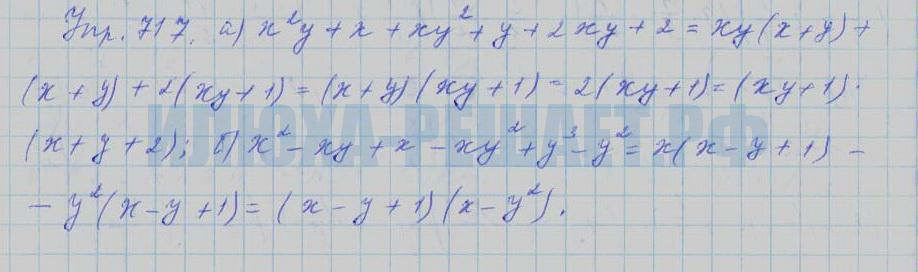 Упр. 717. а) x²y + x + xy² + y + 2xy + 2 = xy(x+y) +
(x + y) + 2(xy+1) = (x+y)(xy+1) - 2(xy+1) = (xy+1)·
(x+y+2); б) x² - xy + x - xy² + y³ - y² = x(x-y+1) -
- y²(x-y+1) = (x-y+1)(x-y²).
ИЛЮХА-РЕШАЕТ.РФ